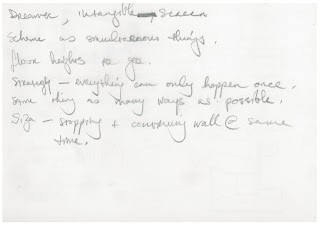 Dreamer, intangible → Screen
Scheme as simultaneous things.
floor heights to go.
Strangely – everything can only happen once.
Same thing as many ways as possible.
Siza – stopping + continuing wall @ same
time.